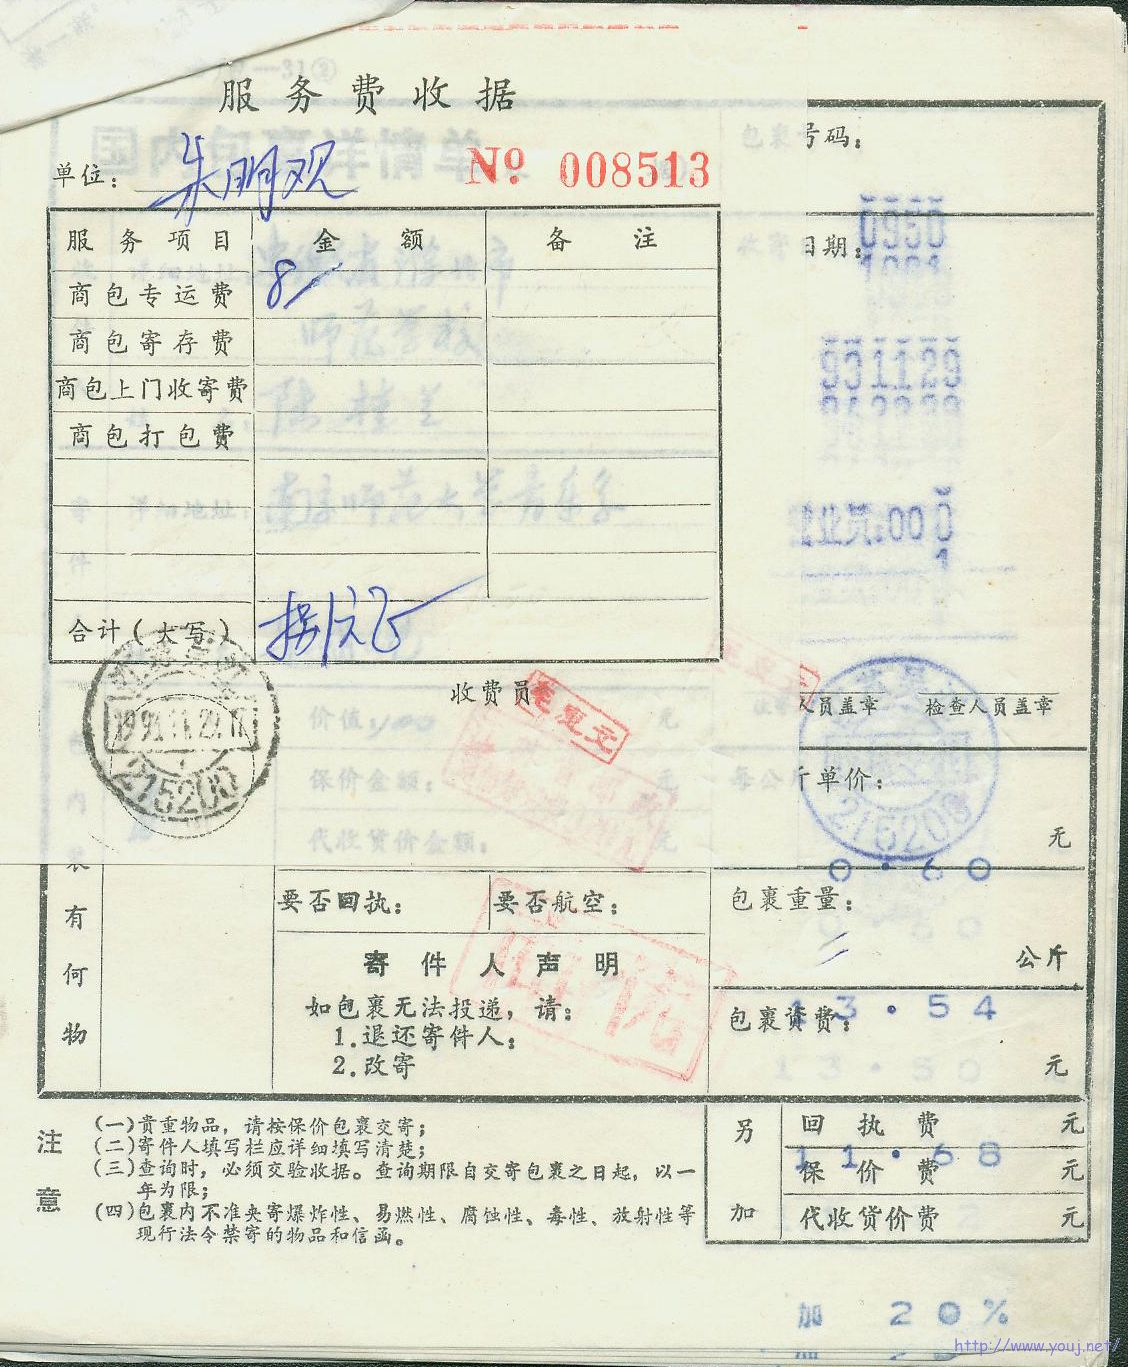 服务费收据
单位： 朱明观 № 008513
服务项目 金额 备注
商包专运费 8/
商包寄存费
商包上门收寄费
商包打包费
合计(大写) 捌元正
收费员 毛夏文
号码：
日期： 0950
951129
营业员:000
人员盖章 检查人员盖章
每公斤单价：
元
0.60
价值: 100 元
保价金额： 元
代收货价金额： 元
215200
包裹内装有何物
要否回执： 要否航空：
包裹重量：
公斤
寄件人声明
如包裹无法投递，请：
1.退还寄件人；
2.改寄
包裹资费： 13.54
13.50
元
注意
(一)贵重物品，请按保价包裹交寄；
(二)寄件人填写栏应详细填写清楚；
(三)查询时，必须交验收据。查询期限自交寄包裹之日起，以一
年为限；
(四)包裹内不准夹寄爆炸性、易燃性、腐蚀性、毒性、放射性等
现行法令禁寄的物品和信函。
另加
回执费 元
11.68
保价费 元
代收货价费 元
加 20%
http://www.youj.net/